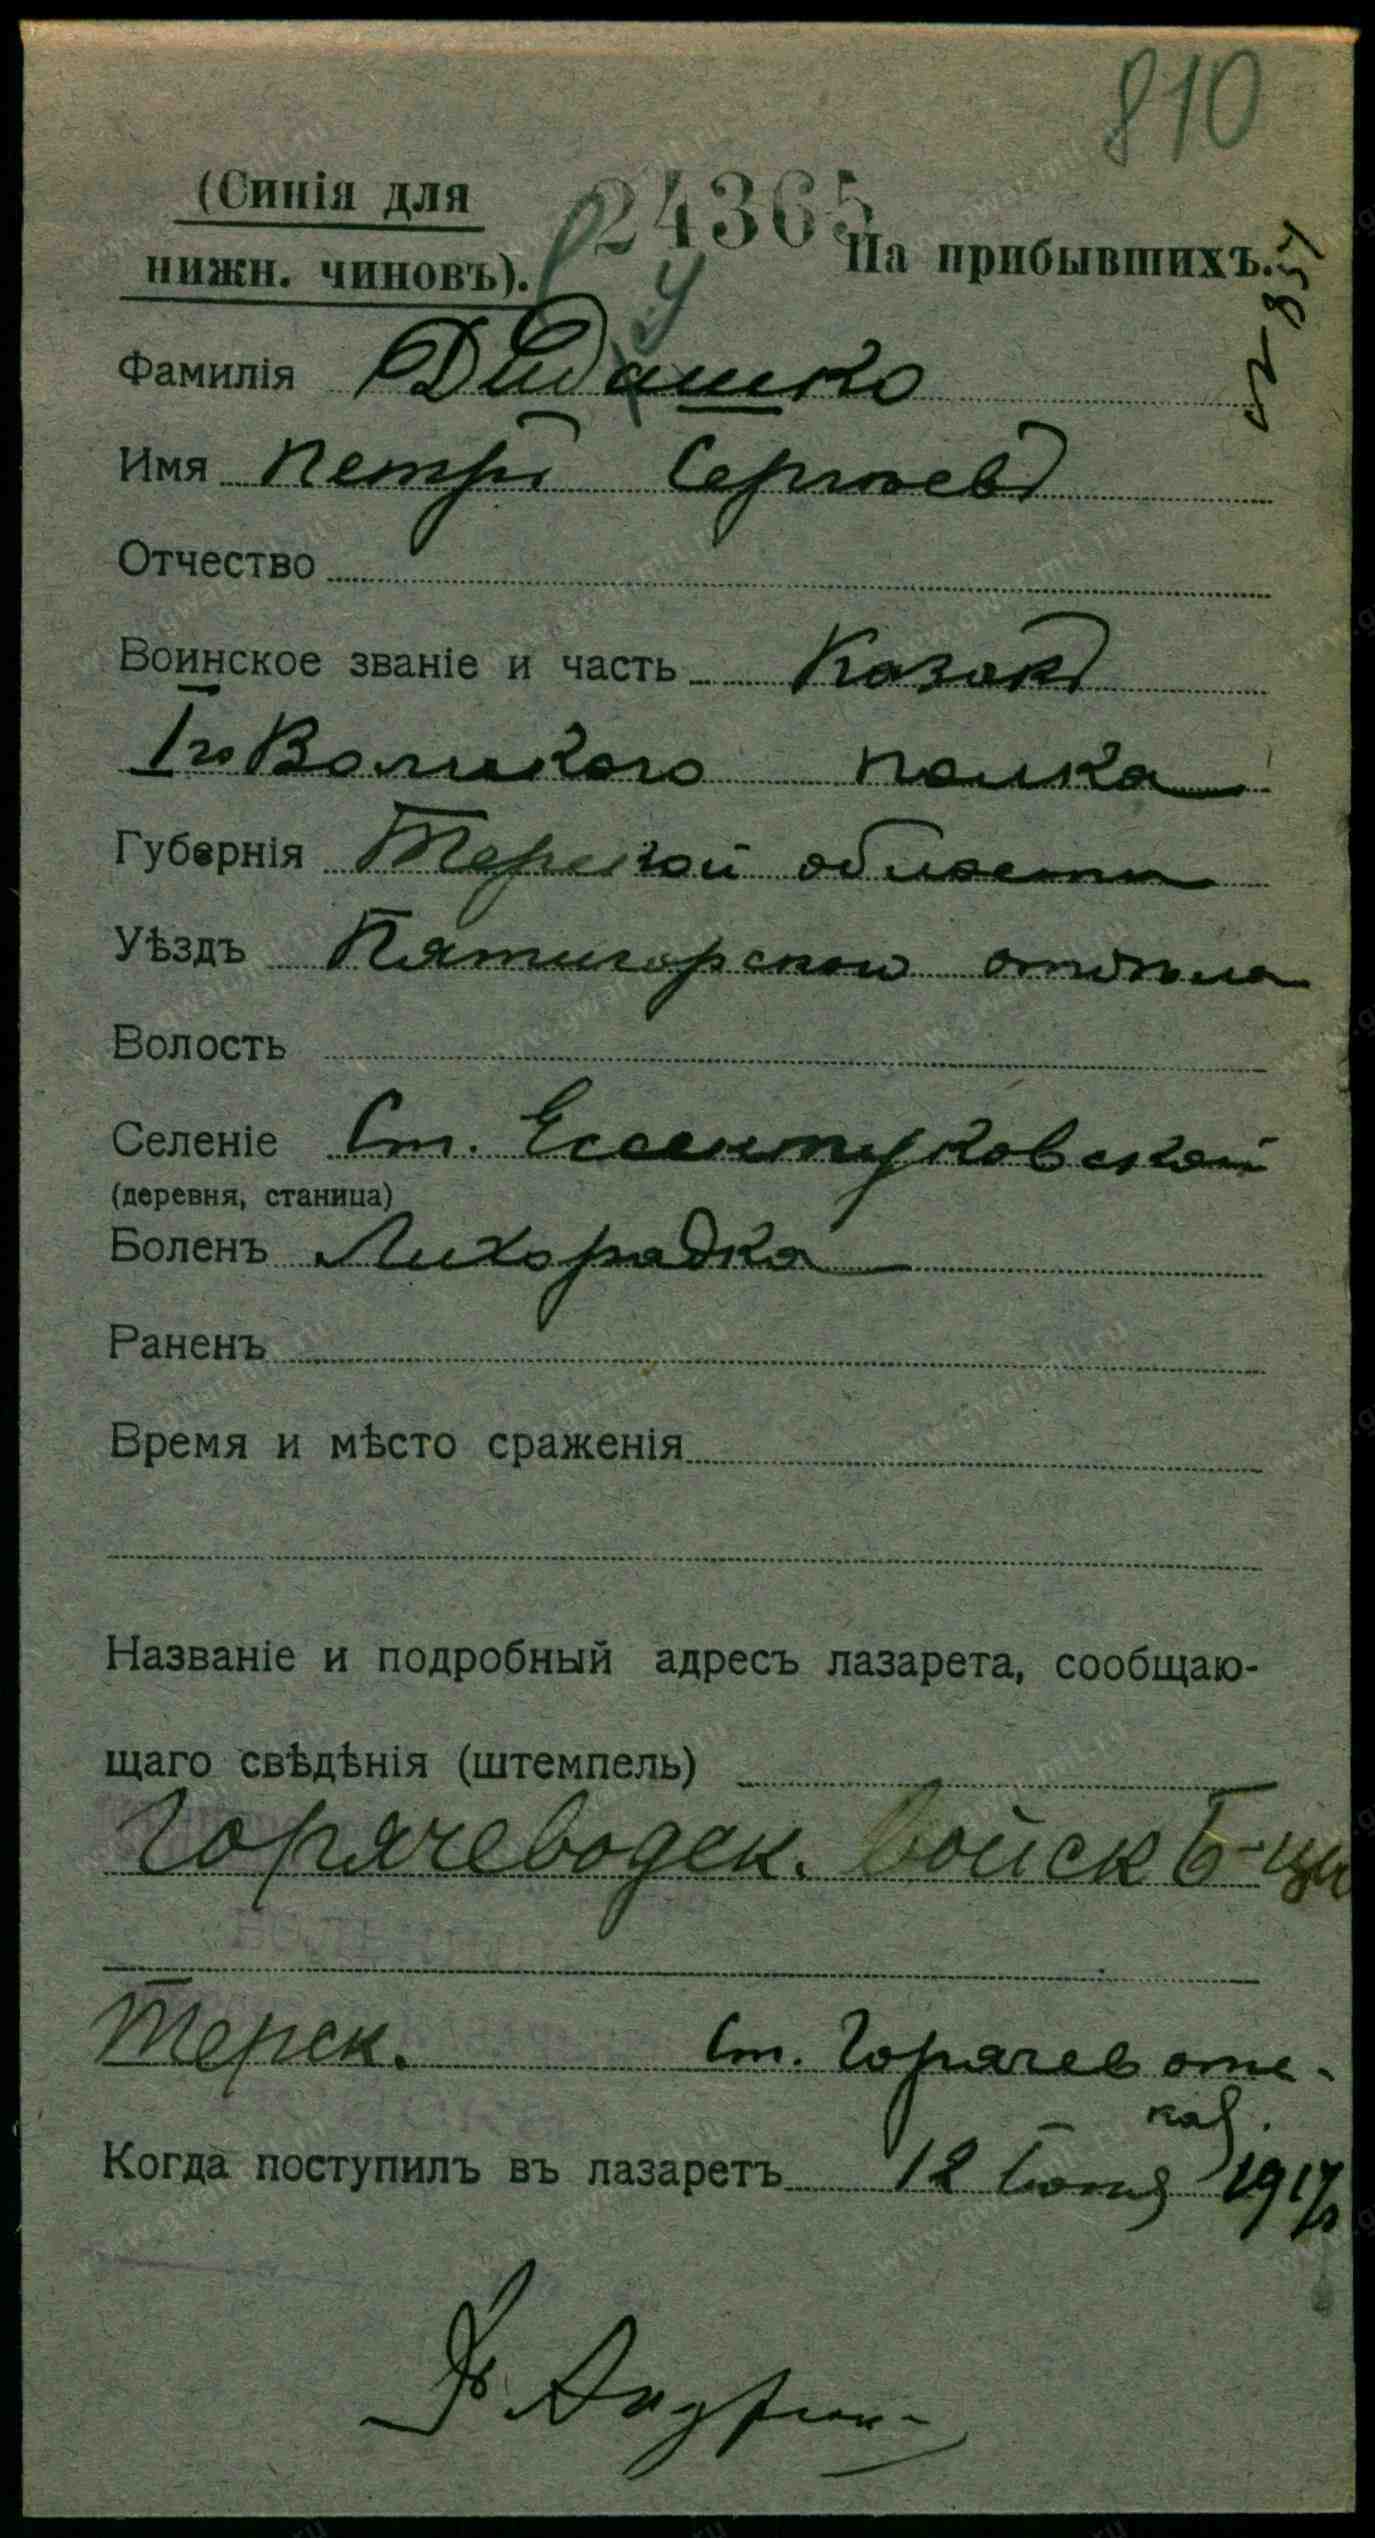 810
(Синія для
24365
нижн. чиновъ).
На прибывшихъ.
у
Фамилія Дидашко
Имя Петръ Сергѣевъ
Отчество
Воинское званіе и часть Казакъ
1го Волгскаго полка
Губернія Терской области
Уѣздъ Пятигорскаго отдѣла
Волость
Селеніе Ст. Ессентуковской
(деревня, станица)
Боленъ Лихорадка
Раненъ
Время и мѣсто сраженія
Названіе и подробный адресъ лазарета, сообщаю-
щаго свѣдѣнія (штемпель)
Горячеводск. войск Б-цы
Терск. Ст. Горячевотс-
кая.
Когда поступилъ въ лазаретъ 12 Іюня 1917